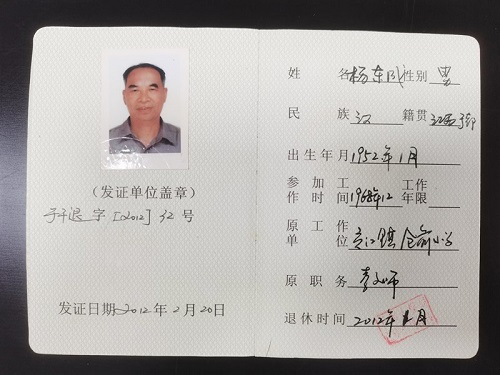 (发证单位盖章)
字[2012]32号
发证日期 2012年2月20日
姓名 杨东 性别 男
民族 汉 籍贯 江西
出生年月 1952年1月
参加工作时间 1968年12 工作年限
原工作单位 镇 小学
原职务 教师
退休时间 2012年1月